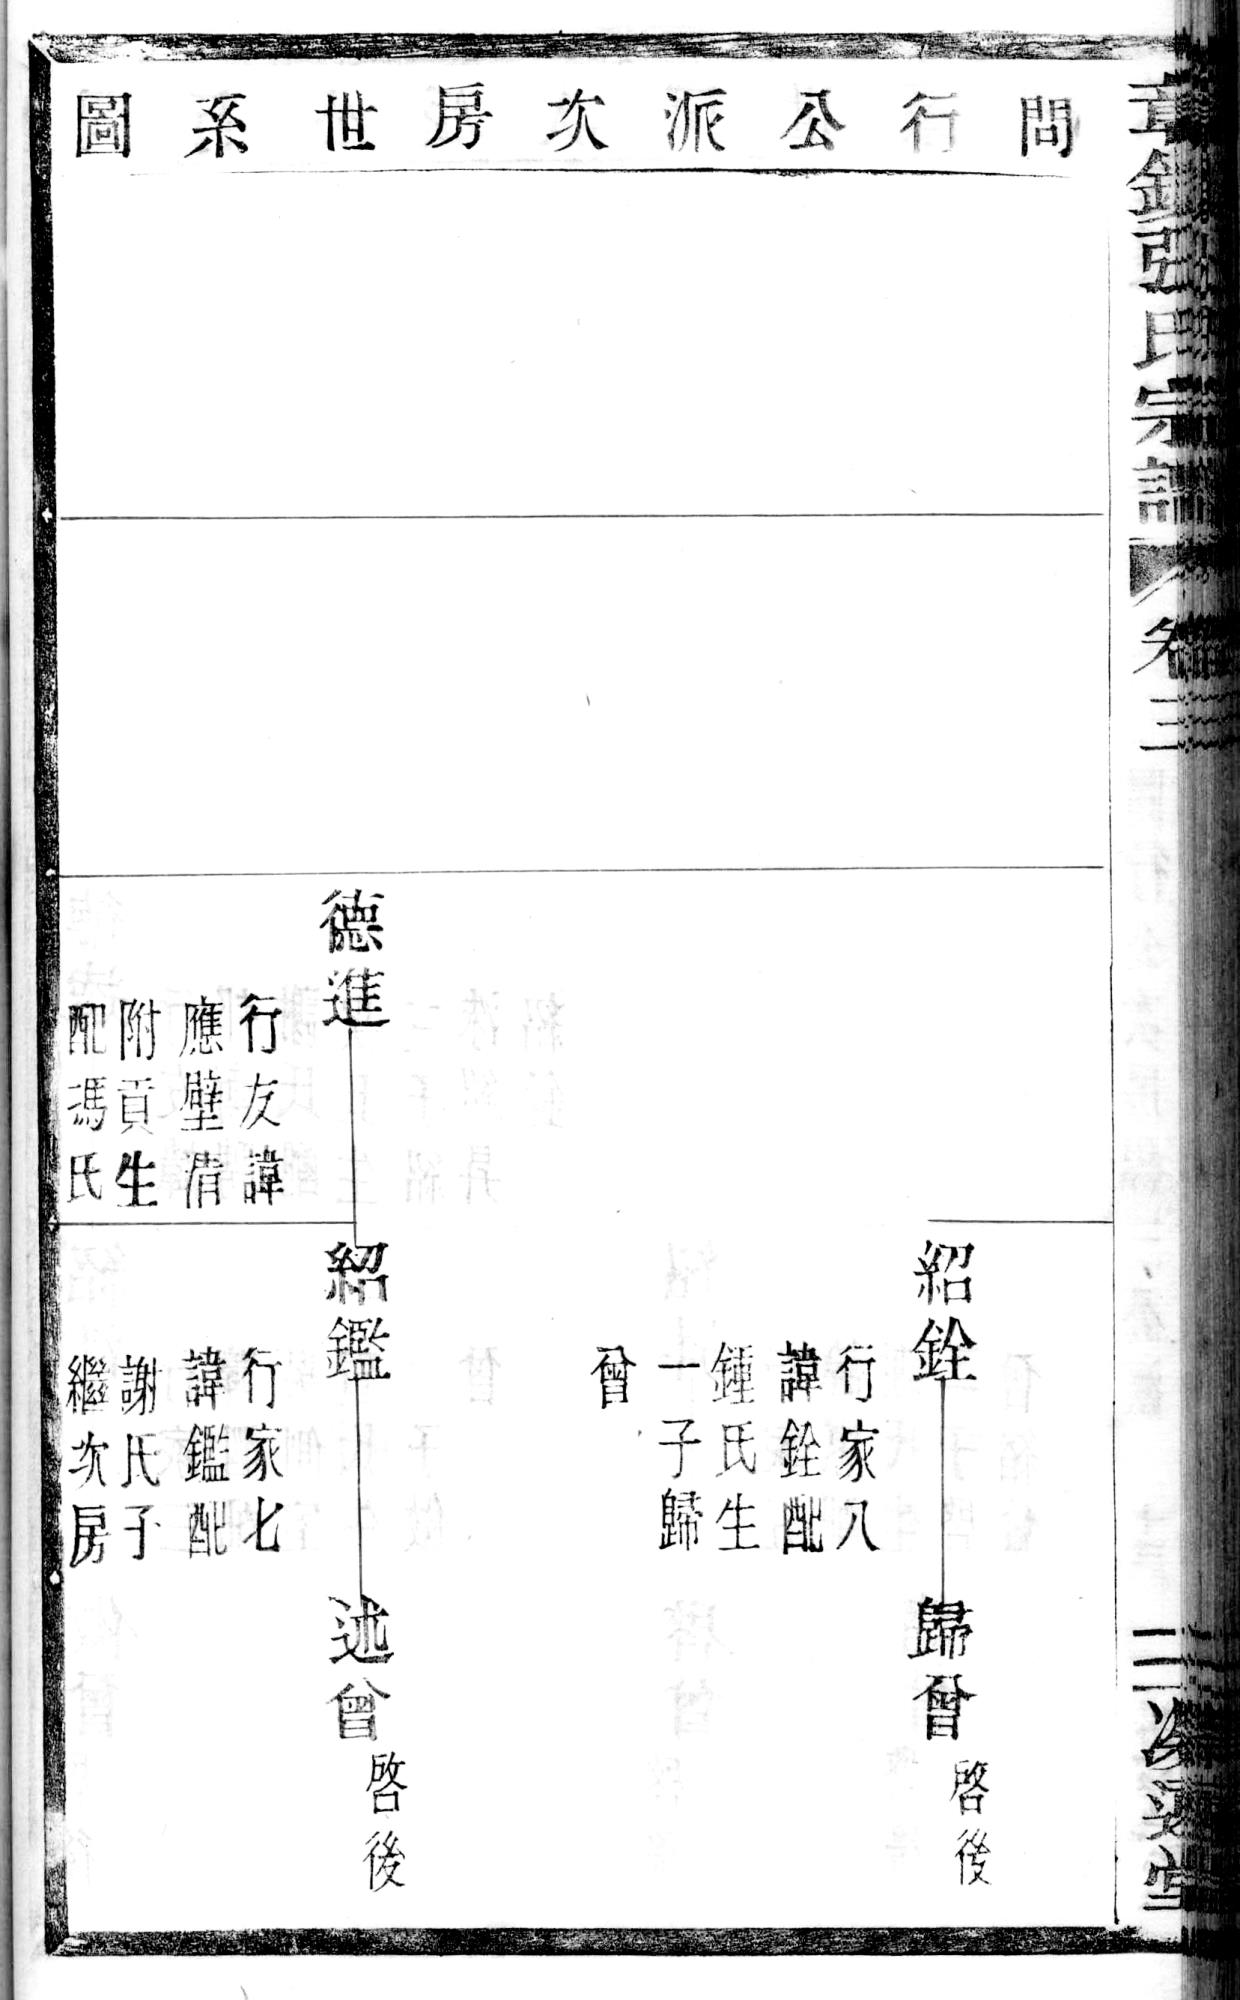 章鎮張氏宗譜
卷三
問行公派次房世系圖
紹銓
行家八
諱銓配
鍾氏生
一子歸
曾
歸曾
啓後
德進
行友諱
應壁清
附貢生
配馮氏
紹鑑
行家七
諱鑑配
謝氏子
繼次房
述曾
啓後